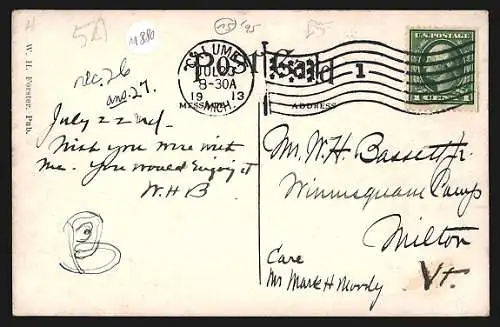 M 880
15 '95
W. H. Forster, Pub.
rec. 26
ans. 27.
Post Card
CALUMET
JUL 23
8-30A
19 13
MICH.
1
U.S. POSTAGE
1 CENT 1
MESSAGE
ADDRESS
July 22nd.
Wish you were with
me. You would enjoy it
W.H.B
Mr. W. H. Bassett Jr.
Winnisquam Camp
Milton
Vt.
Care
Mr Mark H Moody